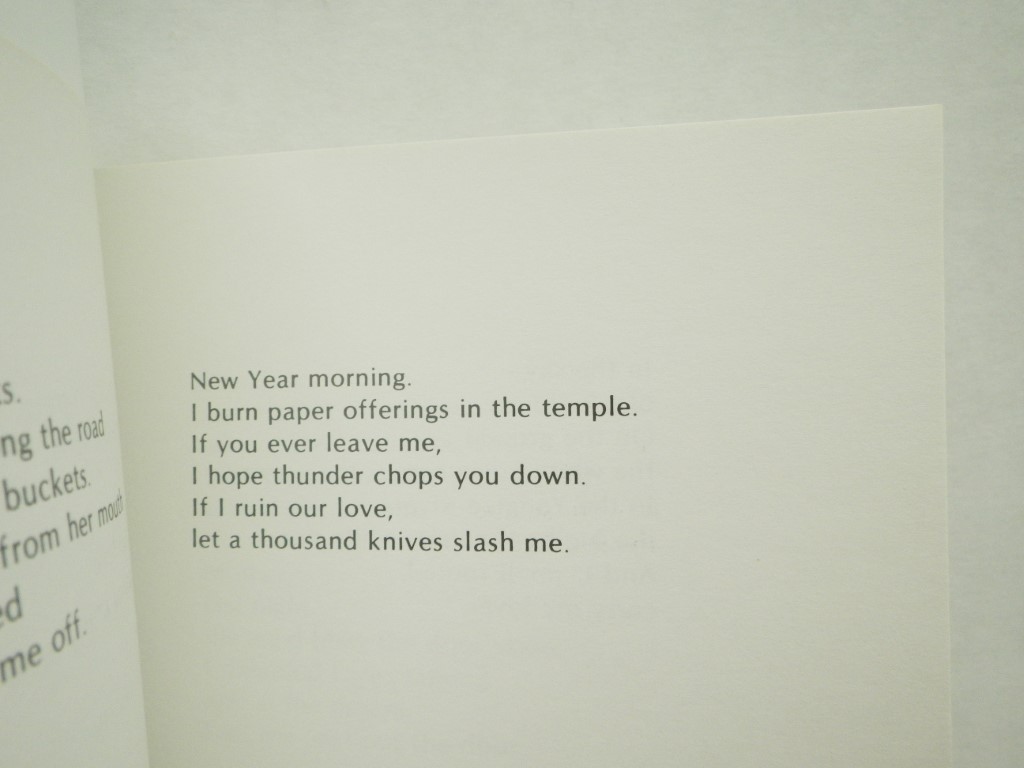 s.
ng the road
buckets.
from her mouth
ed
me off.
New Year morning.
I burn paper offerings in the temple.
If you ever leave me,
I hope thunder chops you down.
If I ruin our love,
let a thousand knives slash me.